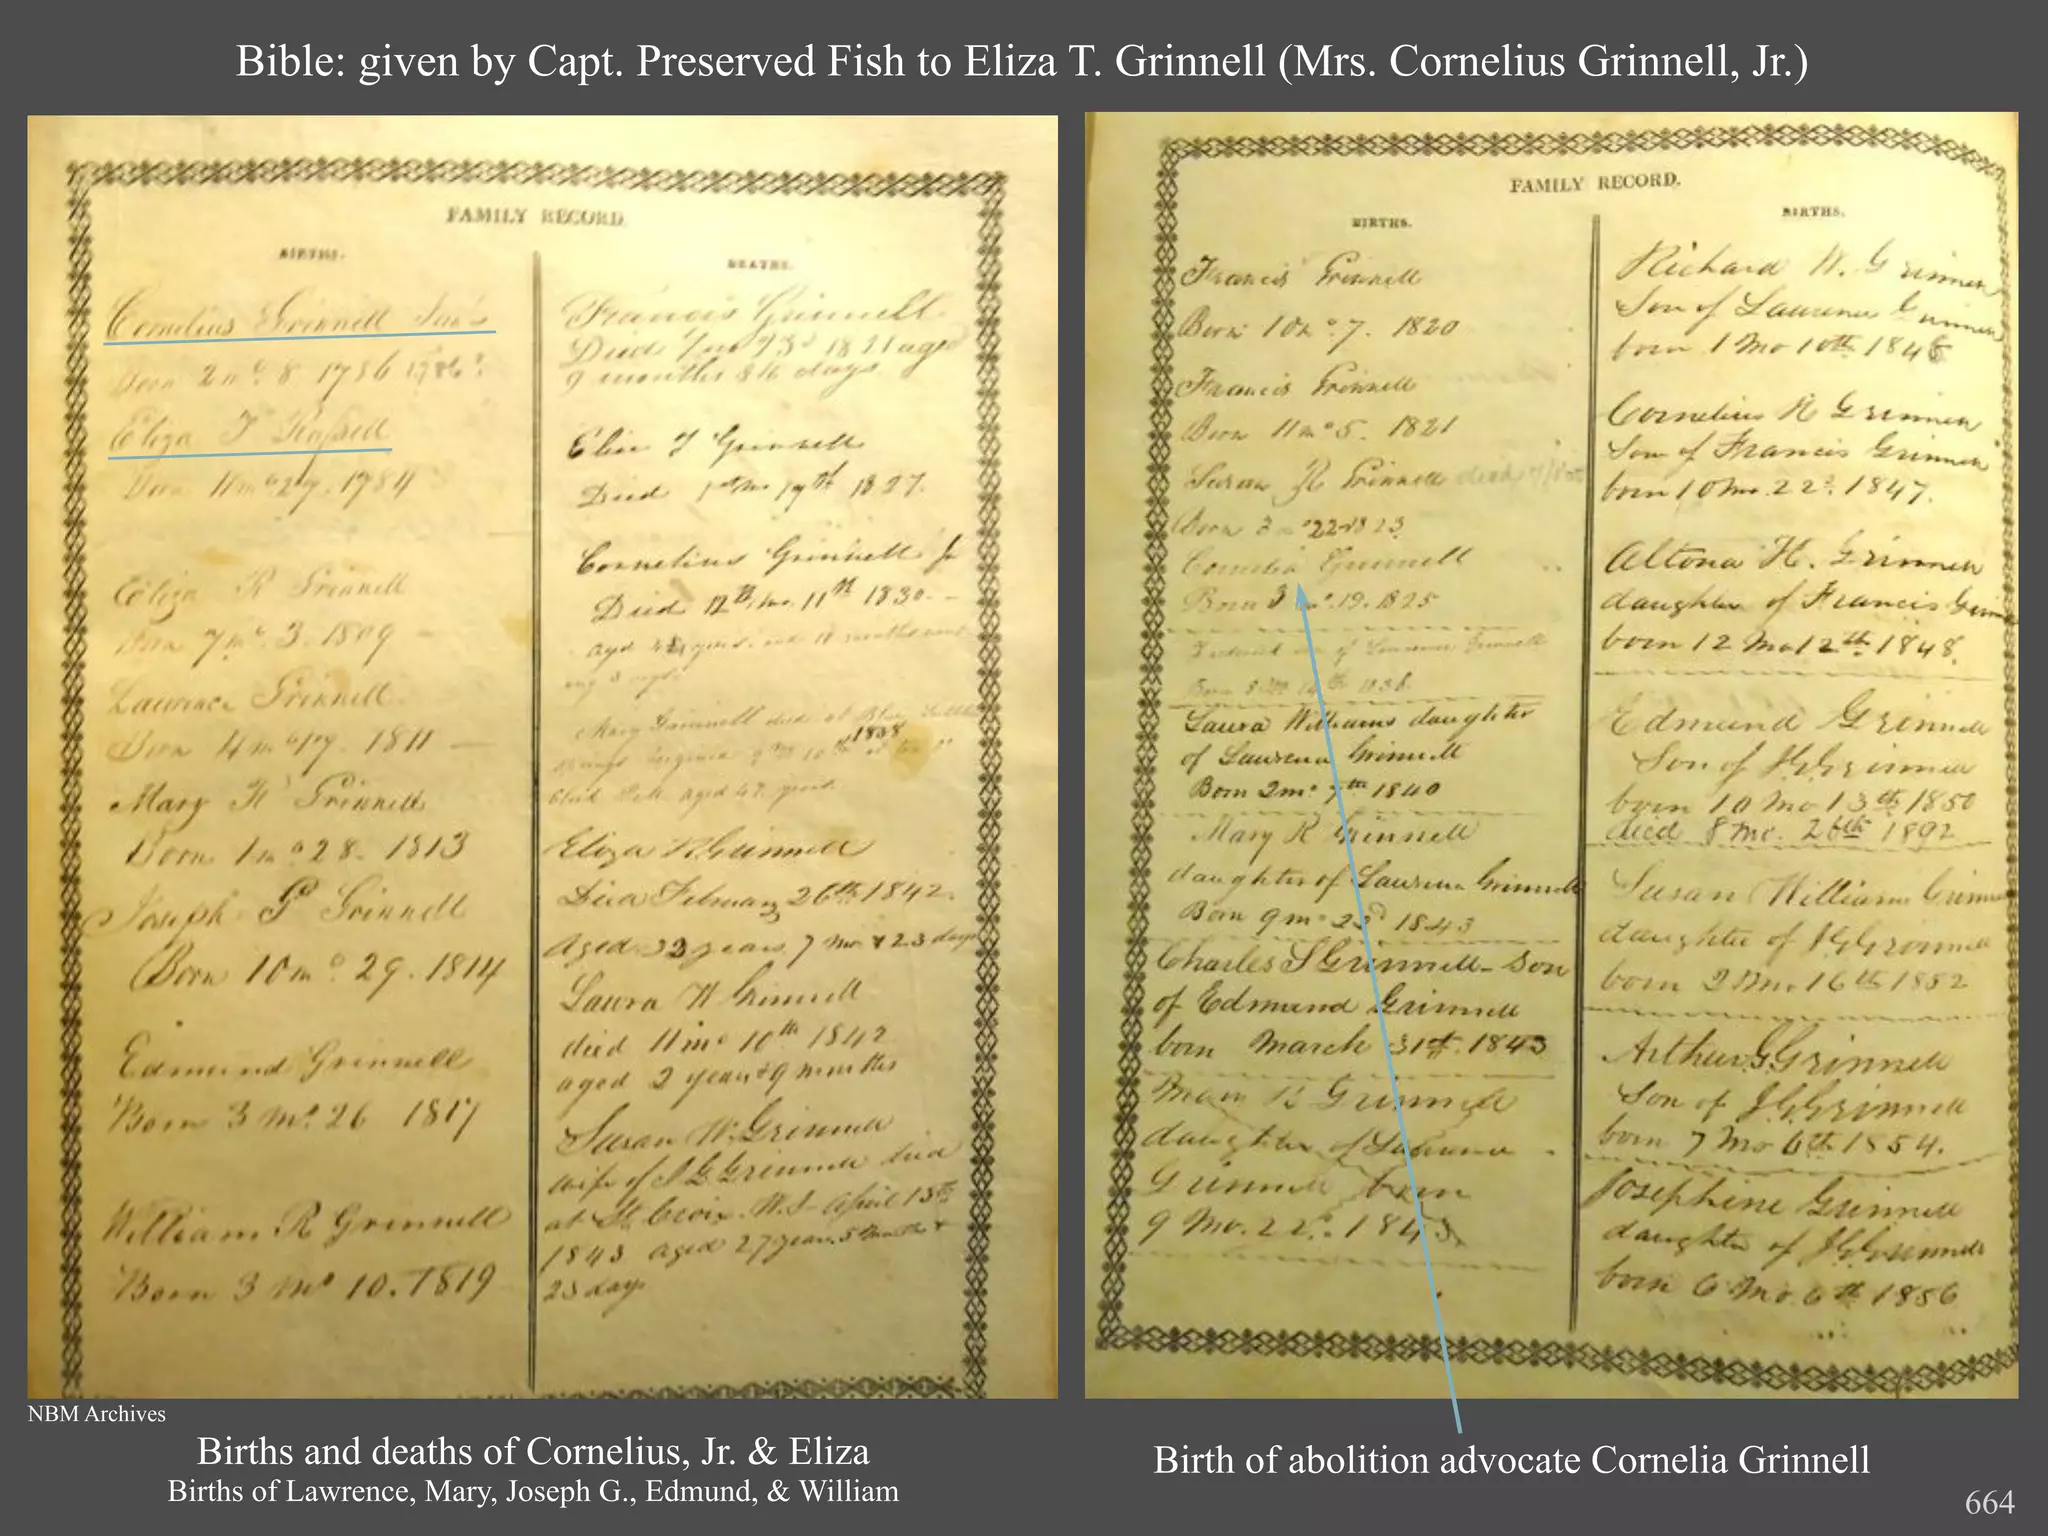 Bible: given by Capt. Preserved Fish to Eliza T. Grinnell (Mrs. Cornelius Grinnell, Jr.)
FAMILY RECORD.
BIRTHS.
Cornelius Grinnell Jun's
Born 2 mo. 8. 1786 1786
Eliza T Russell
Born 11 mo 27. 1784
Eliza R Grinnell
Born 7 mo 3. 1809
Lawrence Grinnell
Born 4 mo 1811
Mary R Grinnell
Born 1 mo 28. 1813
Joseph G Grinnell
Born 10 mo 29. 1814
Edmund Grinnell
Born 3 mo. 26 1817
William R Grinnell
Born 3 mo 10. 1819
DEATHS.
Francis Grinnell
Died 7 mo 23d 1821 age
9 months & 16 days.
Eliza T Grinnell
Died 1st mo 19th 1827.
Cornelius Grinnell Jr
Died 12th mo. 11th 1830.
aged 44 years and 10 months
Mary Grinnell died at Blue
1838
Springs Virginia 9th mo 10th
aged 47 years
Eliza R Grinnell
Died February 26th 1842.
Aged 32 years, 7 mo & 23 days
Laura W Grinnell
died 11 mo 10th 1842
aged 2 years & 9 months
Susan W. Grinnell
wife of J G Grinnell died
at St Croix. W.I. April 15th
1843 aged 27 years, 5 months +
23 days
FAMILY RECORD.
BIRTHS.
Francis Grinnell
Born 10 mo. 7. 1820
Francis Grinnell
Born 11 mo 5. 1821
Susan R Grinnell died
Born 3 mo 22 1823
Cornelia Grinnell
Born 3 mo. 19. 1825
Frederick son of Lawrence Grinnell
Born 8 mo 14th 1836.
Laura Williams daughter
of Lawrence Grinnell
Born 2 mo. 7th 1840
Mary R Grinnell
daughter of Lawrence Grinnell
Born 9 mo 22d 1843
Charles S Grinnell - Son
of Edmund Grinnell
born March 31st. 1843
Mary R Grinnell
daughter of Lawrence
Grinnell born
9 Mo. 22d. 1843
BIRTHS.
Richard W. Grinnell
Son of Lawrence Grinnell
born 1 Mo 10th 1845
Cornelius R Grinnell
Son of Francis Grinnell
born 10 Mo. 22d. 1847.
Altona H. Grinnell
daughter of Francis Grinn
born 12 Mo 12th 1848.
Edmund Grinnell
Son of J G Grinnell
born 10 Mo 13th 1850
died 8 Mo. 26th 1892
Susan Williams Grinne
daughter of J G Grinnell
born 2 Mo. 16th 1852
Arthur G. Grinnell
Son of J G Grinnell
born 7 Mo 6th 1854.
Josephine Grinnell
daughter of J G Grinnell
born 6 Mo. 6th 1856
NBM Archives
Births and deaths of Cornelius, Jr. & Eliza
Births of Lawrence, Mary, Joseph G., Edmund, & William
Birth of abolition advocate Cornelia Grinnell
664